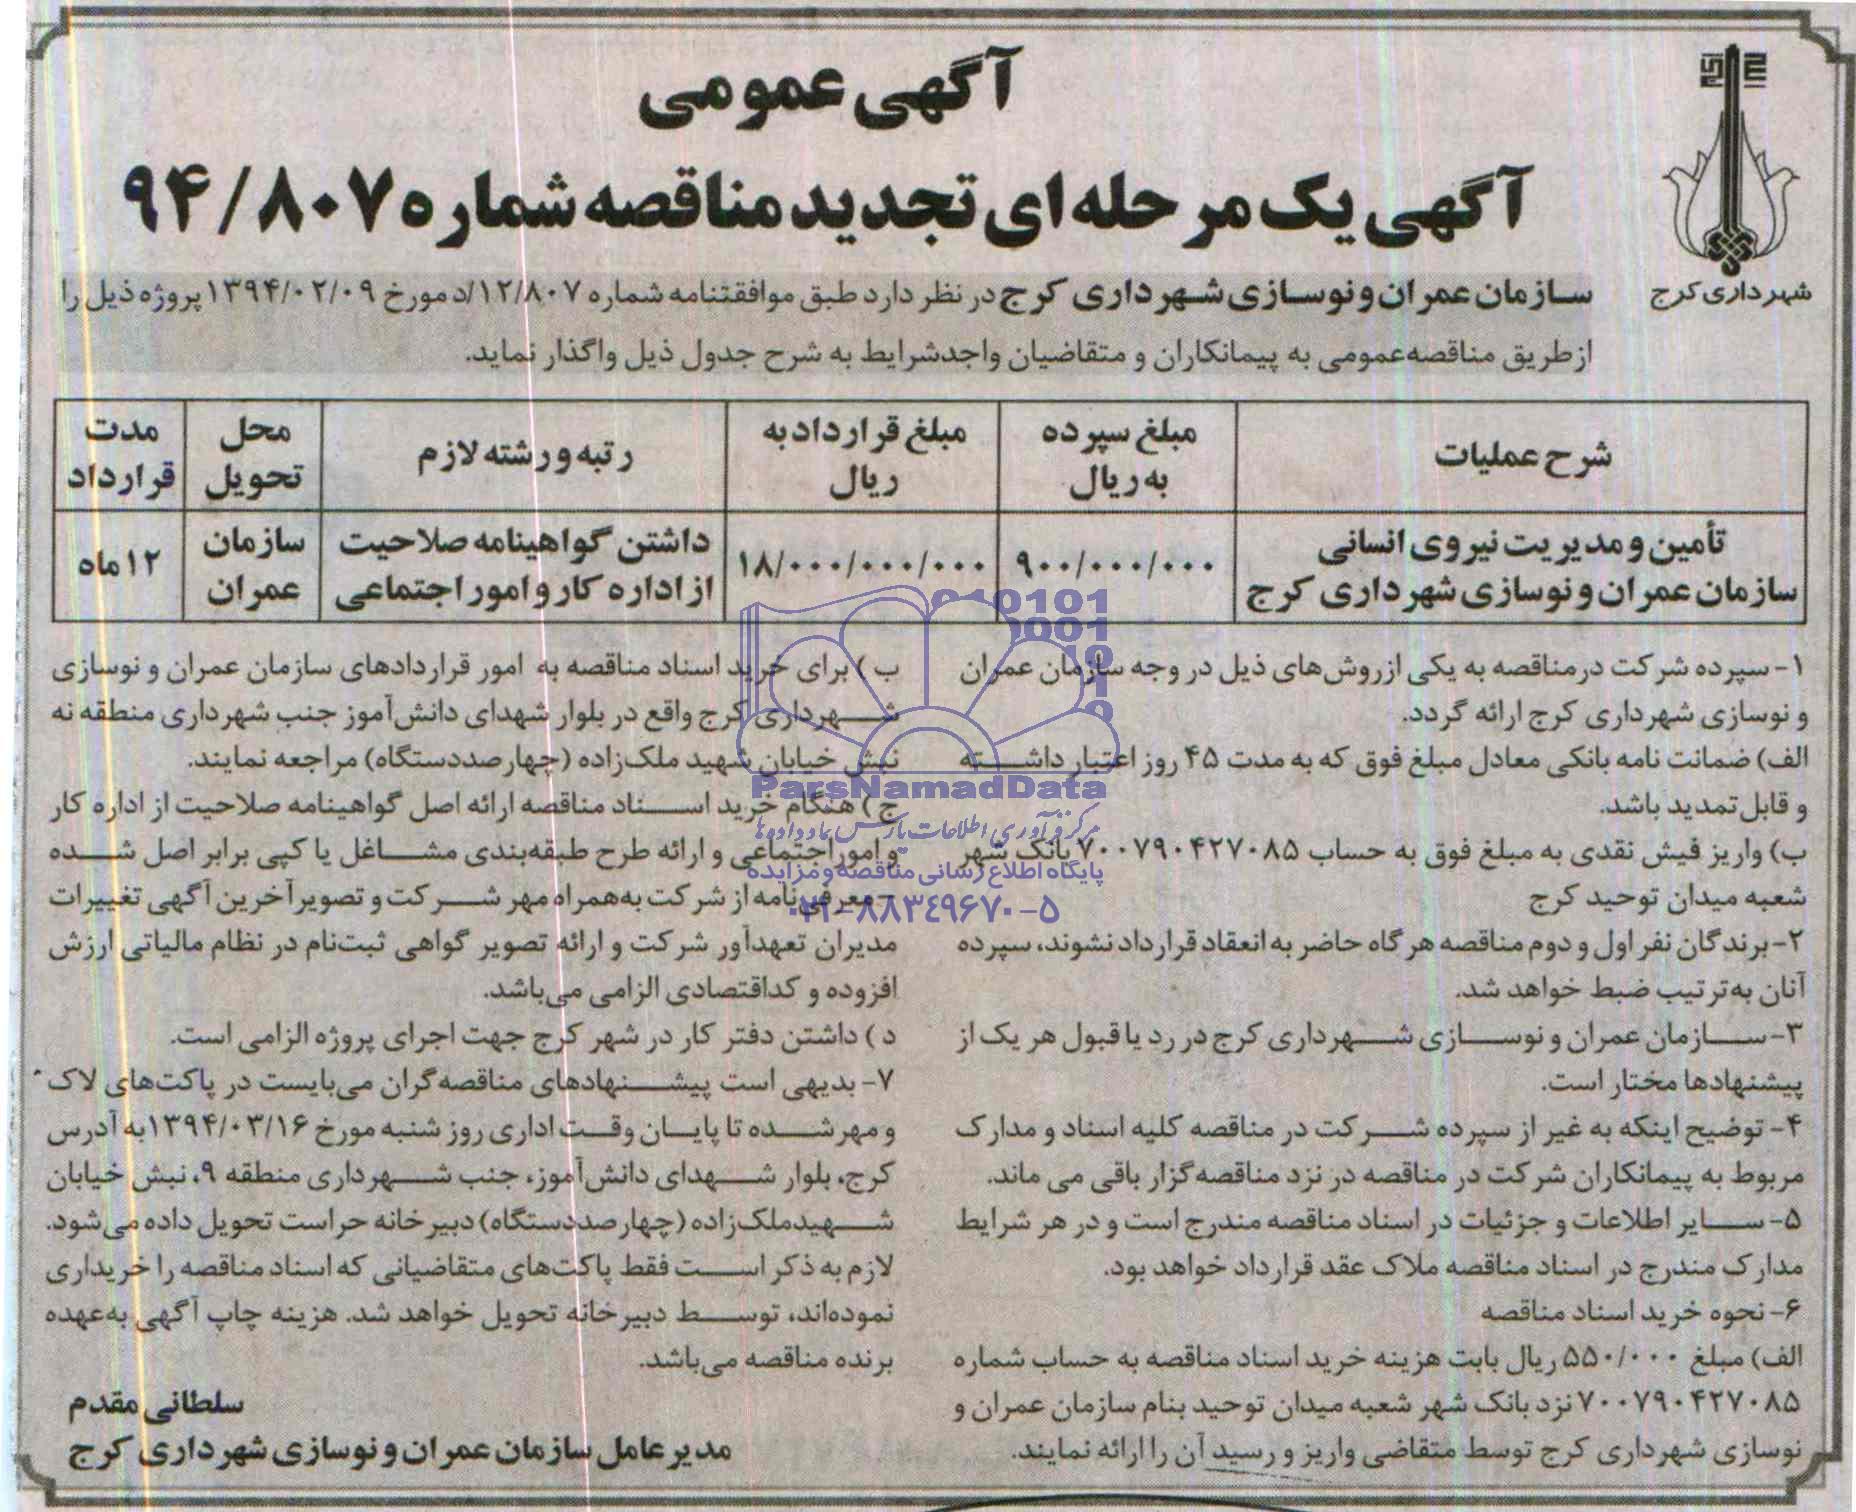 شهرداری کرج
آگهی عمومی
آگهی یک مرحله ای تجدید مناقصه شماره ۹۴/۸۰۷
سازمان عمران و نوسازی شهرداری کرج در نظر دارد طبق موافقتنامه شماره ۱۲/۸۰۷/د مورخ ۱۳۹۴/۰۲/۰۹ پروژه ذیل را
از طریق مناقصه عمومی به پیمانکاران و متقاضیان واجد شرایط به شرح جدول ذیل واگذار نماید.
شرح عملیات
مبلغ سپرده
به ریال
مبلغ قرارداد به
ریال
رتبه و رشته لازم
محل
تحویل
مدت
قرارداد
تأمین و مدیریت نیروی انسانی
سازمان عمران و نوسازی شهرداری کرج
۹۰۰/۰۰۰/۰۰۰
۱۸/۰۰۰/۰۰۰/۰۰۰
داشتن گواهینامه صلاحیت
از اداره کار و امور اجتماعی
سازمان
عمران
۱۲ ماه
۱- سپرده شرکت در مناقصه به یکی از روش‌های ذیل در وجه سازمان عمران
و نوسازی شهرداری کرج ارائه گردد.
الف) ضمانت نامه بانکی معادل مبلغ فوق که به مدت ۴۵ روز اعتبار داشته
و قابل تمدید باشد.
ب) واریز فیش نقدی به مبلغ فوق به حساب ۷۰۰۷۹۰۴۲۷۰۸۵ بانک شهر
شعبه میدان توحید کرج
۲- برندگان نفر اول و دوم مناقصه هرگاه حاضر به انعقاد قرارداد نشوند، سپرده
آنان به‌ترتیب ضبط خواهد شد.
۳- سازمان عمران و نوسازی شهرداری کرج در رد یا قبول هر یک از
پیشنهادها مختار است.
۴- توضیح اینکه به غیر از سپرده شرکت در مناقصه کلیه اسناد و مدارک
مربوط به پیمانکاران شرکت در مناقصه در نزد مناقصه‌گزار باقی می ماند.
۵- سایر اطلاعات و جزئیات در اسناد مناقصه مندرج است و در هر شرایط
مدارک مندرج در اسناد مناقصه ملاک عقد قرارداد خواهد بود.
۶- نحوه خرید اسناد مناقصه
الف) مبلغ ۵۵۰/۰۰۰ ریال بابت هزینه خرید اسناد مناقصه به حساب شماره
۷۰۰۷۹۰۴۲۷۰۸۵ نزد بانک شهر شعبه میدان توحید بنام سازمان عمران و
نوسازی شهرداری کرج توسط متقاضی واریز و رسید آن را ارائه نمایند.
ب) برای خرید اسناد مناقصه به امور قراردادهای سازمان عمران و نوسازی
شهرداری کرج واقع در بلوار شهدای دانش‌آموز جنب شهرداری منطقه نه
نبش خیابان شهید ملک‌زاده (چهارصددستگاه) مراجعه نمایند.
ج) هنگام خرید اسناد مناقصه ارائه اصل گواهینامه صلاحیت از اداره کار
و امور اجتماعی و ارائه طرح طبقه‌بندی مشاغل یا کپی برابر اصل شده
- معرفی‌نامه از شرکت به‌همراه مهر شرکت و تصویر آخرین آگهی تغییرات
مدیران تعهدآور شرکت و ارائه تصویر گواهی ثبت‌نام در نظام مالیاتی ارزش
افزوده و کداقتصادی الزامی می‌باشد.
د) داشتن دفتر کار در شهر کرج جهت اجرای پروژه الزامی است.
۷- بدیهی است پیشنهادهای مناقصه‌گران می‌بایست در پاکت‌های لاک
و مهر شده تا پایان وقت اداری روز شنبه مورخ ۱۳۹۴/۰۳/۱۶ به آدرس
کرج، بلوار شهدای دانش‌آموز، جنب شهرداری منطقه ۹، نبش خیابان
شهید ملک‌زاده (چهارصددستگاه) دبیرخانه حراست تحویل داده می‌شود.
لازم به ذکر است فقط پاکت‌های متقاضیانی که اسناد مناقصه را خریداری
نموده‌اند، توسط دبیرخانه تحویل خواهد شد. هزینه چاپ آگهی به‌عهده
برنده مناقصه می‌باشد.
سلطانی مقدم
مدیرعامل سازمان عمران و نوسازی شهرداری کرج
ParsNamadData
مرکز فرآوری اطلاعات پارس نماد داده‌ها
پایگاه اطلاع رسانی مناقصه و مزایده
۰۲۱-۸۸۳۴۹۶۷۰-۵